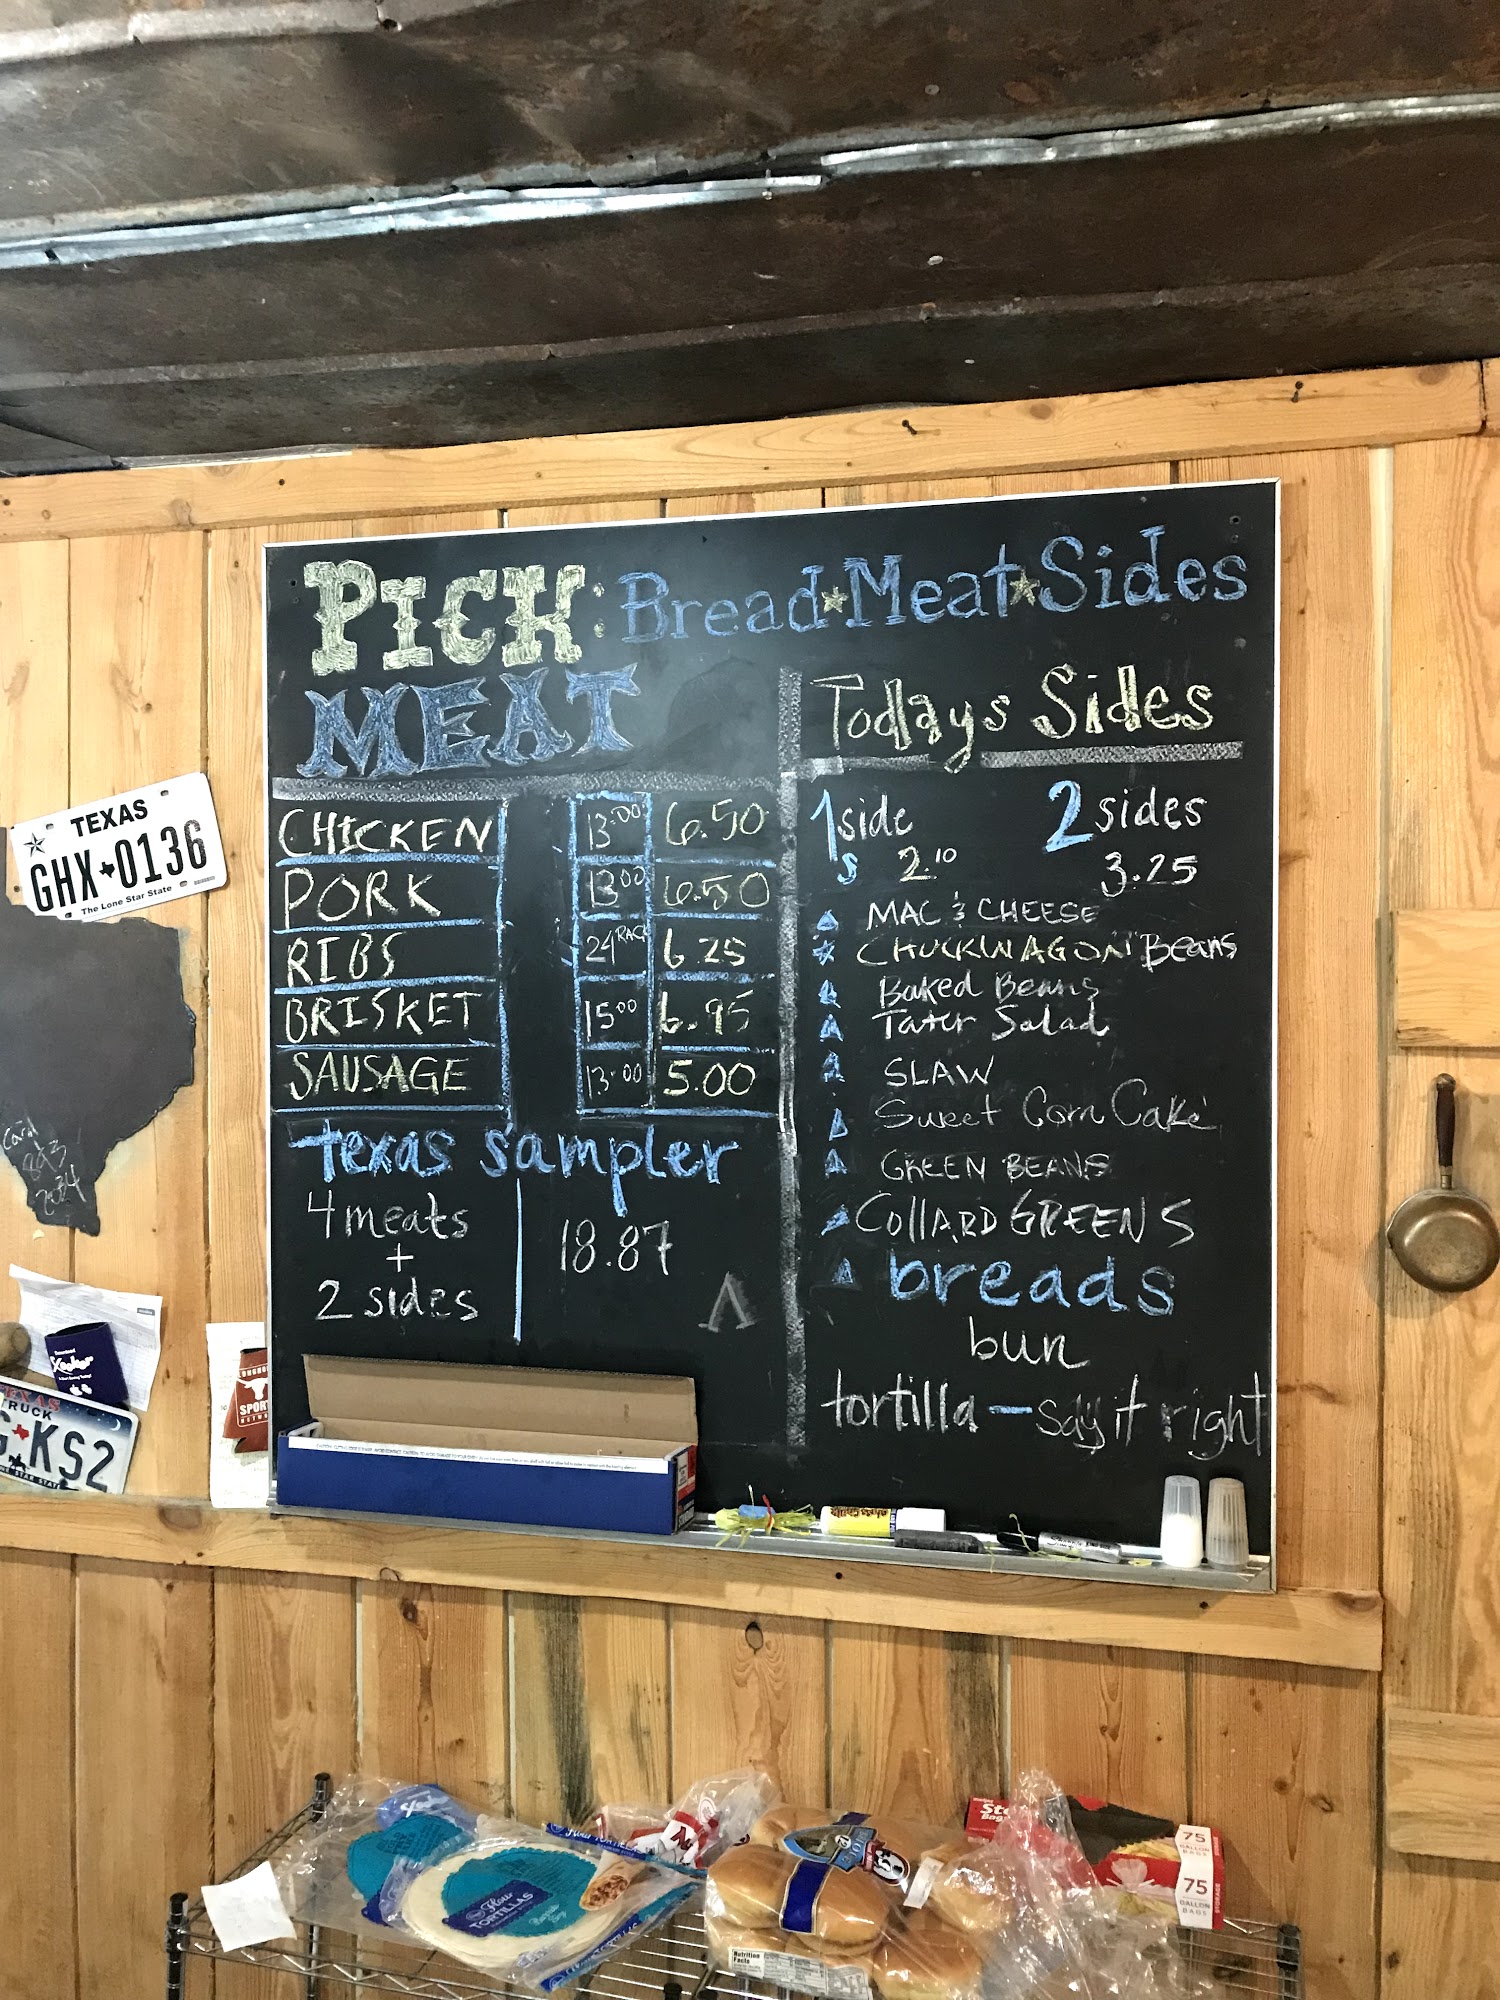 PICK: Bread★Meat★Sides
MEAT
CHICKEN 13.00 6.50
PORK 13.00 6.50
RIBS 24 RACK 6.25
BRISKET 15.00 6.95
SAUSAGE 13.00 5.00
texas sampler
4 meats
+
2 sides
18.87
Todays Sides
1 side
2.10
2 sides
3.25
MAC & CHEESE
CHUCKWAGON Beans
Baked Beans
Tater Salad
SLAW
Sweet Corn Cake
GREEN BEANS
COllARD GREENS
breads
bun
tortilla — say it right
TEXAS
GHX 0136
The Lone Star State
Carol
TEXAS
TRUCK
KS2
LONE STAR STATE
SPORTS
NETWORK
Sharpie
TORTILLAS
Nutrition
Facts
75
GALLON
BAGS
75
GALLON
BAGS